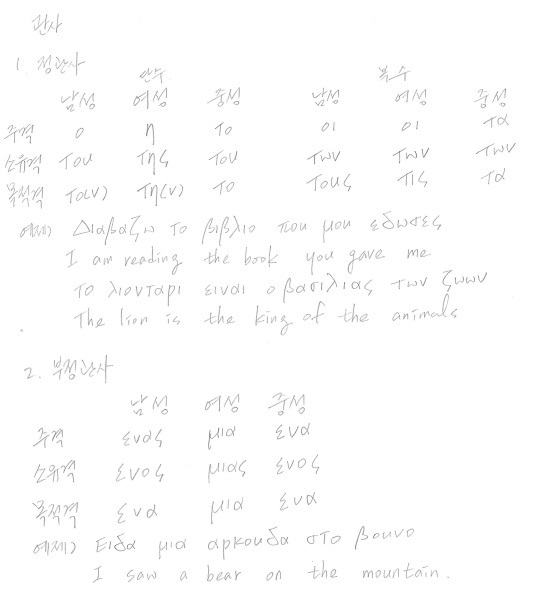 관사
1. 정관사
단수 복수
남성 여성 중성 남성 여성 중성
주격 ο η το οι οι τα
소유격 του της του των των των
목적격 το(ν) τη(ν) το τους τις τα
예제) Διαβαζω το βιβλιο που μου εδωσες
I am reading the book you gave me
το λιονταρι ειναι ο βασιλιας των ζωων
The lion is the king of the animals
2. 부정관사
남성 여성 중성
주격 ενας μια ενα
소유격 ενος μιας ενος
목적격 ενα μια ενα
예제) Ειδα μια αρκουδα στο βουνο
I saw a bear on the mountain.